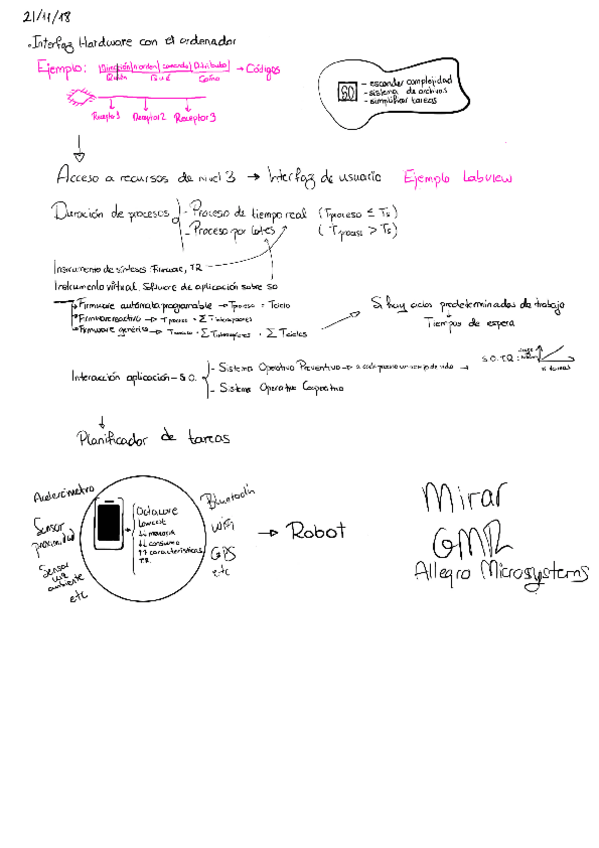 21/11/18
• Interfaz Hardware con el ordenador
Ejemplo: Dirección | nº orden | comando | Distribuidor | → Códigos
Quién Qué Cómo
Receptor 1 Receptor 2 Receptor 3
SO
- esconder complejidad
- sistema de archivos
- simplificar tareas
Acceso a recursos de nivel 3 → Interfaz de usuario Ejemplo Labview
Duración de procesos
- Proceso de tiempo real (Tproceso ≤ Ts)
- Proceso por lotes (Tproceso > Ts)
Instrumento de síntesis Firmware, TR
Instrumento virtual. Software de aplicación sobre SO
Firmware autómata programable → Tproceso = Tciclo
Firmware reactivo → Tproceso = Σ Tinterrupciones
Firmware genérico → Σ Tinterrupciones + Σ Tciclos
Si hay ciclos predeterminados de trabajo
Tiempos de espera
Interacción aplicación - S.O.
- Sistema Operativo Preventivo → a cada proceso un tiempo de vida → S.O. TR:
nº tareas
- Sistema Operativo Cooperativo
Planificador de tareas
Acelerómetro
Sensor proximidad
Sensor luz ambiente
etc
Octacore
Lowcost
↓↓ memoria
↓↓ consumo
↑↑ características
TR.
Bluetooth
WiFi
GPS
etc
→ Robot
Mirar
GMR
Allegro Microsystems